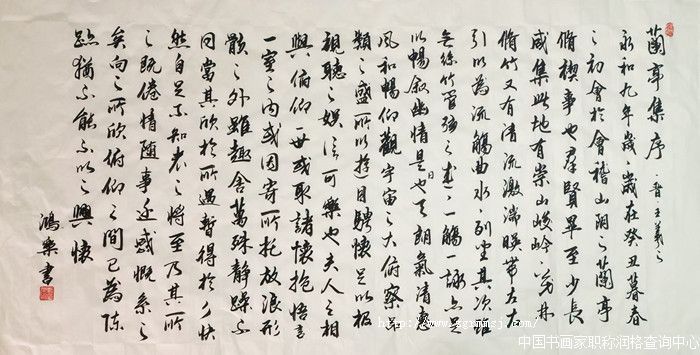 蘭亭集序·晋王羲之
永和九年歲在癸丑暮春
之初會於會稽山陰之蘭亭
脩禊事也群賢畢至少長
咸集此地有崇山峻嶺茂林
脩竹又有清流激湍暎帶左右
引以為流觴曲水列坐其次雖
無絲竹管弦之盛一觴一詠亦足
以暢敘幽情是日也天朗氣清惠
風和暢仰觀宇宙之大俯察品
類之盛所以遊目騁懷足以極
視聽之娛信可樂也夫人之相
與俯仰一世或取諸懷抱悟言
一室之内或因寄所托放浪形
骸之外雖趣舍萬殊靜躁不
同當其欣於所遇暫得於己快
然自足不知老之將至及其所
之既倦情隨事遷感慨系之
矣向之所欣俯仰之間已為陳
跡猶不能不以之興懷
鴻樂書
中国书画家职称润格查询中心